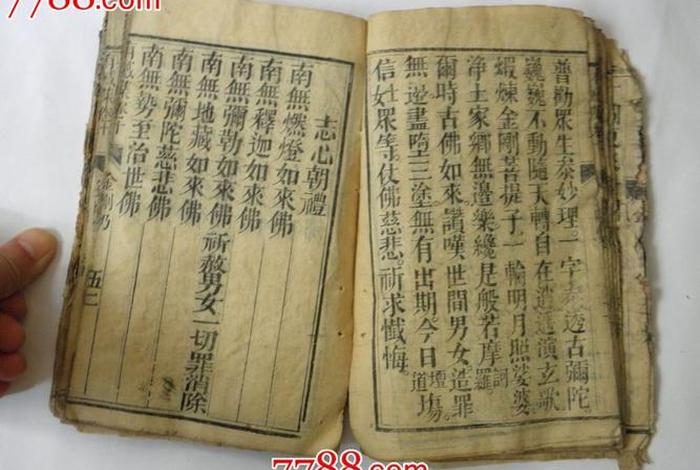 7788.com
普勸眾生叅妙理。一字叅透古彌陀
巍巍不動隨天轉自在逍遥演玄歌
蝦煉金剛菩提子。一輪明月照娑婆。
淨土家鄉無邊樂纔是般若摩訶羅
爾時古佛如來讚嘆世間男女。造罪
無邊盡墮三塗無有出期。今日道壇塲。
信士女眾等。仗佛慈悲。祈求懺悔。
志心朝禮
南無燃燈如來佛
南無釋迦如來佛
南無彌勒如來佛祈救男女一切罪消除
南無地藏如來佛
南無彌陀慈悲佛
南無勢至治世佛
7788.com